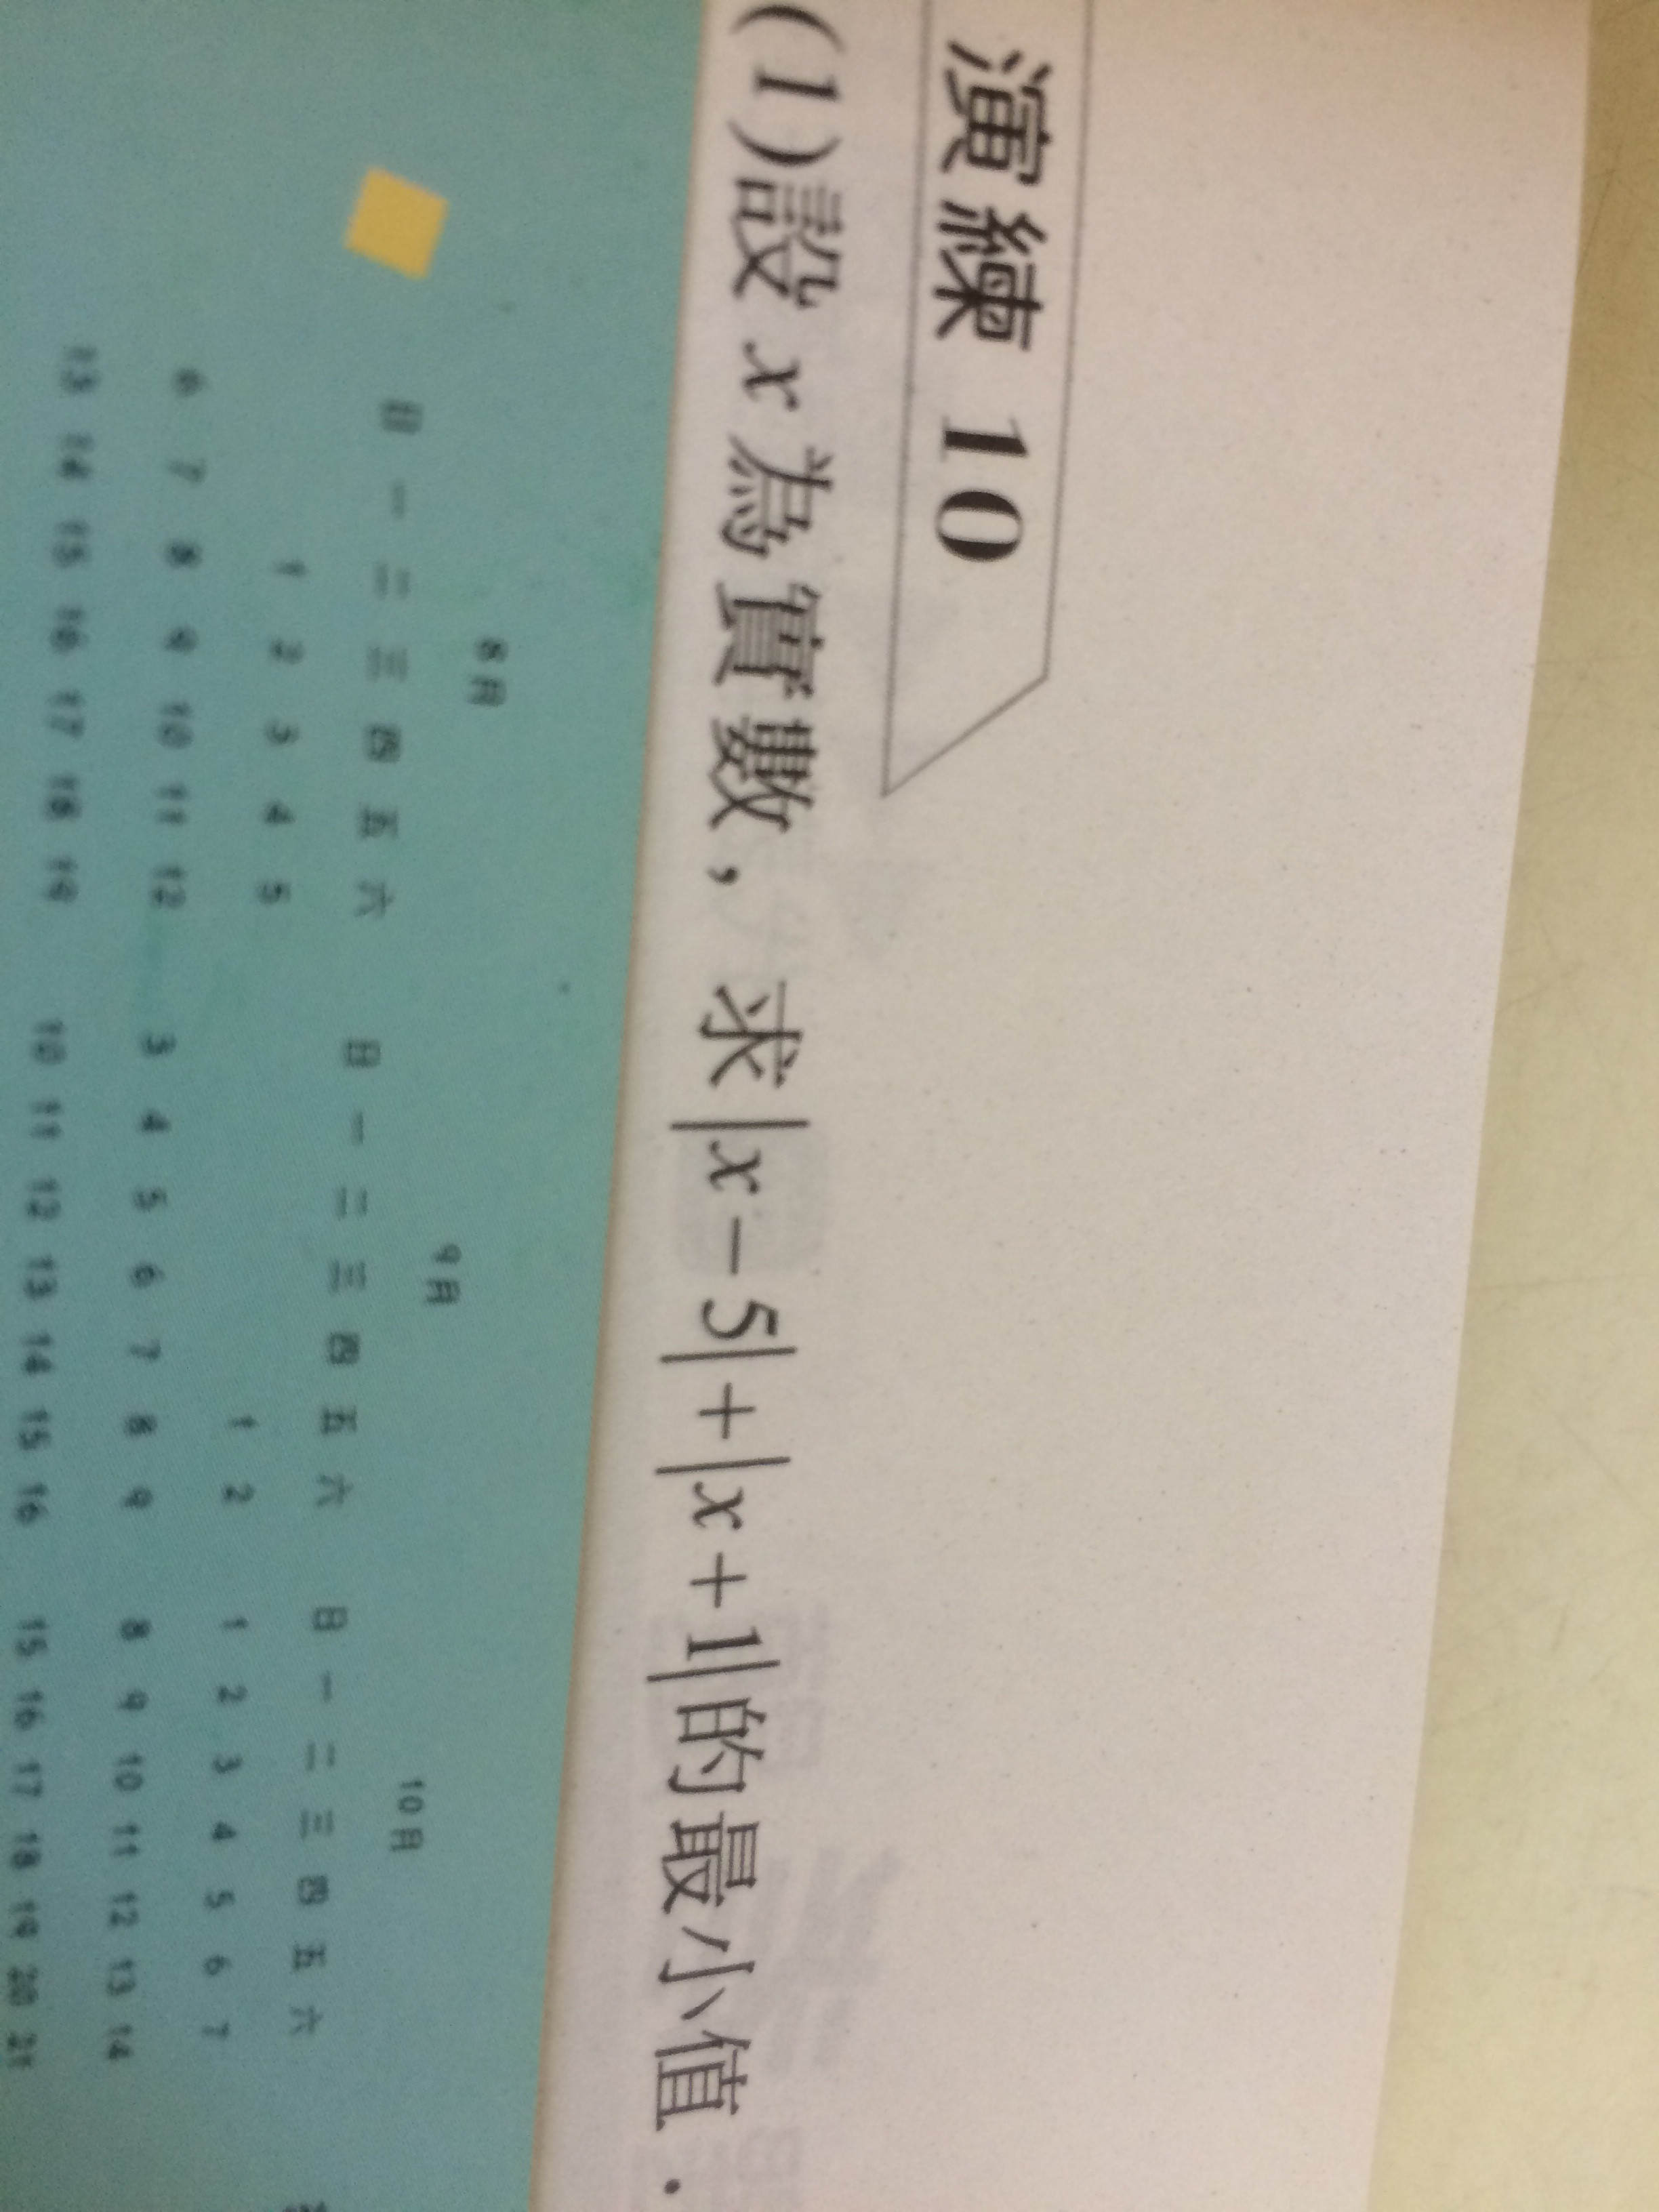 演練 10
(1)設 x 為實數，求|x－5|＋|x＋1|的最小值．
8月
日 一 二 三 四 五 六
1 2 3 4 5
6 7 8 9 10 11 12
13 14 15 16 17 18 19
9月
日 一 二 三 四 五 六
1 2
3 4 5 6 7 8 9
10 11 12 13 14 15 16
10月
日 一 二 三 四 五 六
1 2 3 4 5 6 7
8 9 10 11 12 13 14
15 16 17 18 19 20 21